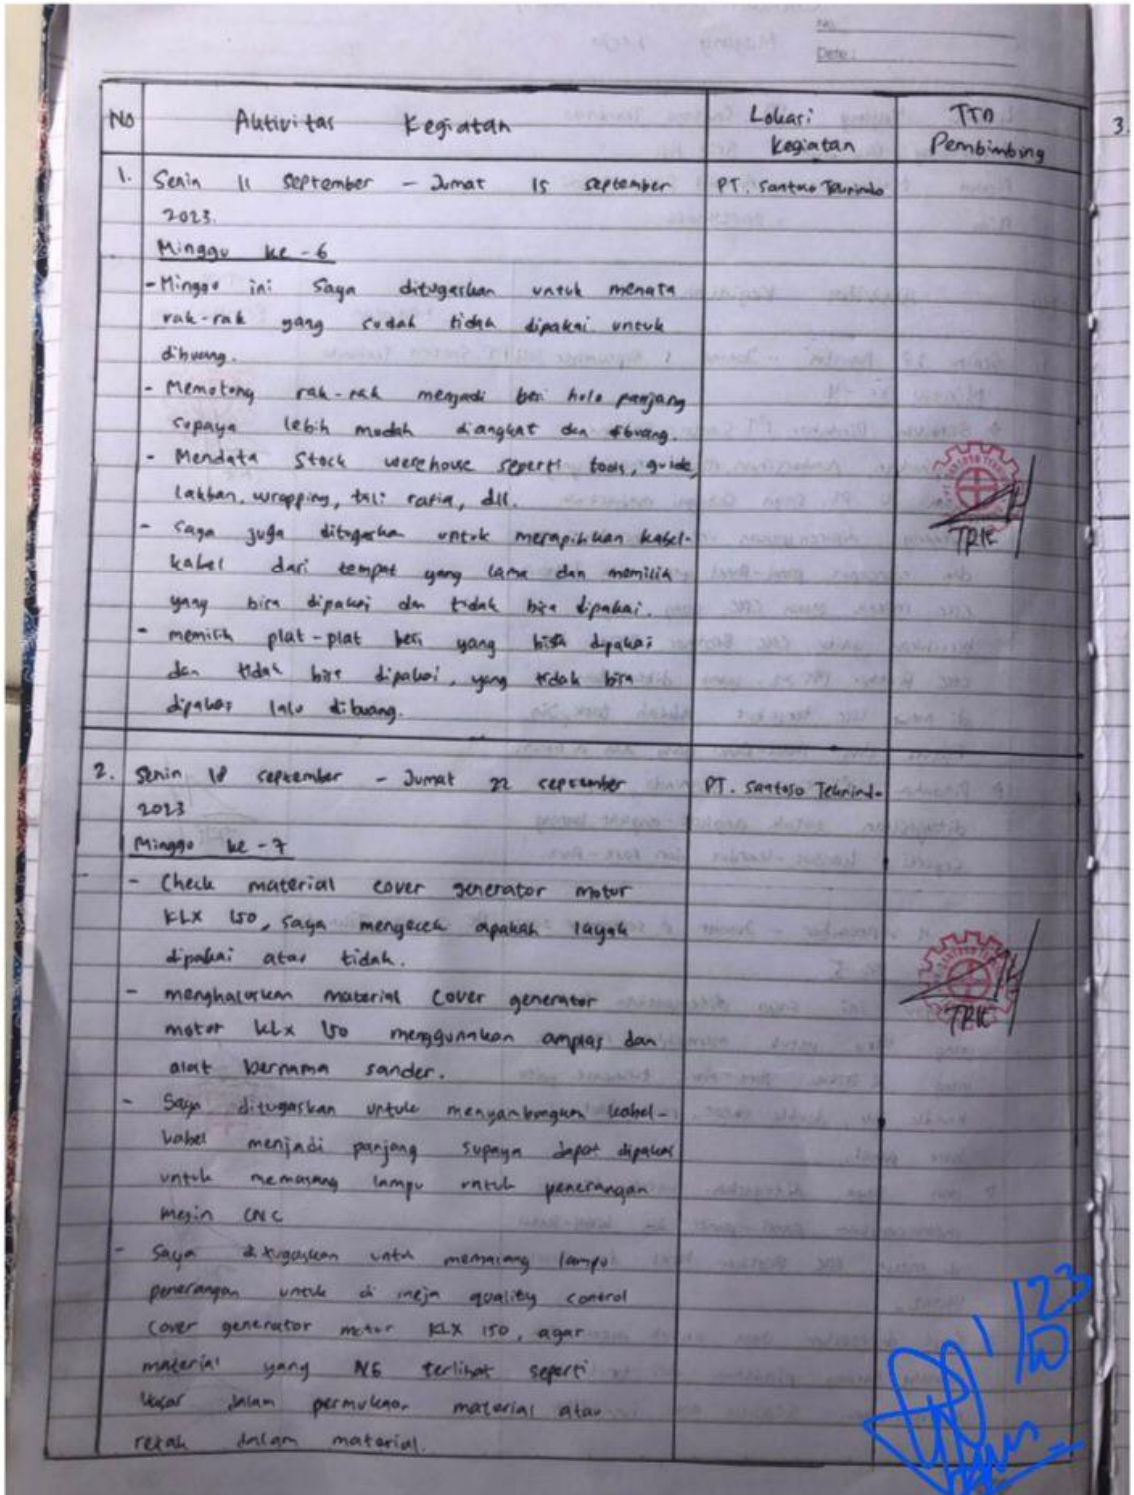 No
Date :
No Aktivitas Kegiatan Lokasi Kegiatan TTD Pembimbing
3
1. Senin 11 September - Jumat 15 September PT. Santoso Teknindo
2023.
Minggu ke - 6
- Minggu ini saya ditugaskan untuk menata
rak-rak yang sudah tidak dipakai untuk
dibuang.
- Memotong rak-rak menjadi besi holo panjang
supaya lebih mudah diangkat dan dibuang.
- Mendata Stock werehouse seperti tools, guide,
lakban, wrapping, tali rafia, dll.
- Saya juga ditugaskan untuk merapihkan kabel-
kabel dari tempat yang lama dan memilih
yang bisa dipakai dan tidak bisa dipakai.
- memilih plat-plat besi yang bisa dipakai
dan tidak bisa dipakai, yang tidak bisa
dipakai lalu dibuang.
TRIK
2. Senin 18 september - Jumat 22 september PT. Santoso Teknindo
2023
Minggu ke - 7
- Check material cover generator motor
KLX 150, saya mengecek apakah layak
dipakai atau tidak.
- menghaluskan material cover generator
motor KLX 150 menggunakan amplas dan
alat bernama sander.
TRIK
- Saya ditugaskan untuk menyambungkan kabel-
kabel menjadi panjang supaya dapat dipakai
untuk memasang lampu untuk penerangan
mesin CNC
- Saya ditugaskan untuk memasang lampu
penerangan untuk di meja quality control
cover generator motor KLX 150, agar
material yang NG terlihat seperti
kasar dalam permukaan material atau
retak dalam material.